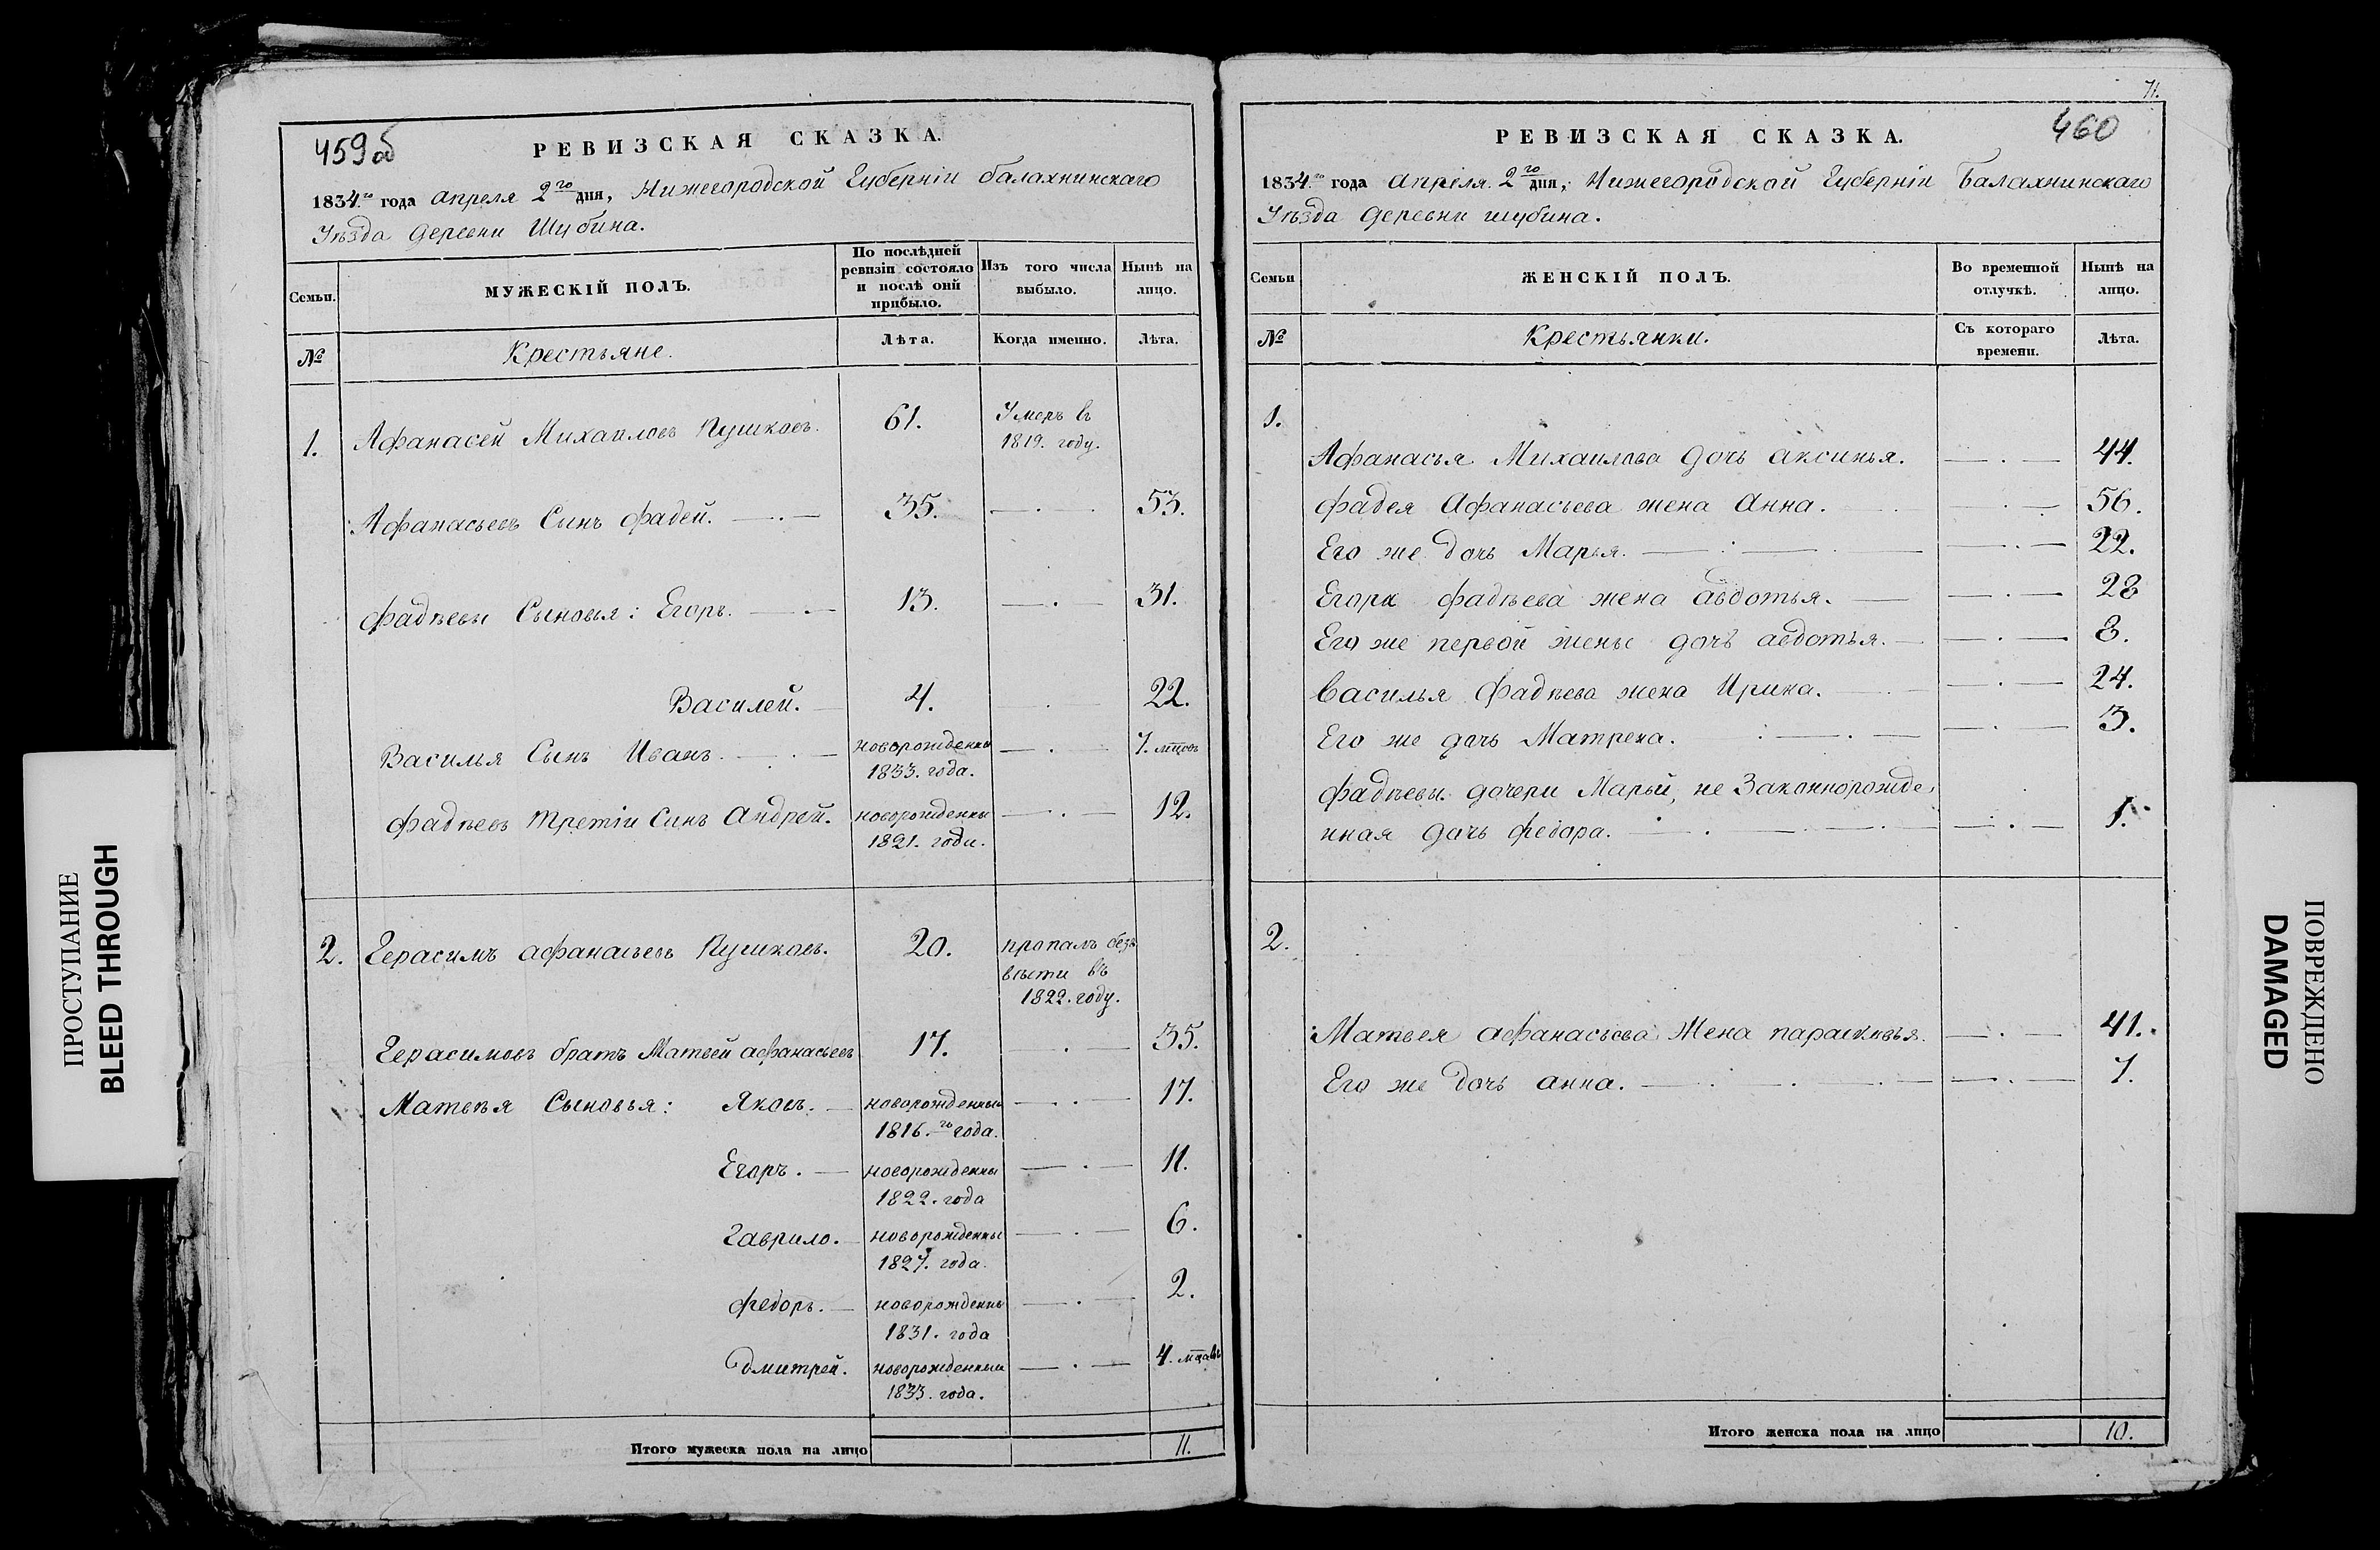 459об
РЕВИЗСКАЯ СКАЗКА.
1834.го года апреля 2го дня, Нижегородской Губерніи балахнинскаго
Уѣзда деревни Шубина.
Семьи.
МУЖЕСКІЙ ПОЛЪ.
По послѣдней
ревизіи состояло
и послѣ оной
прибыло.
Изъ того числа
выбыло.
Нынѣ на
лицо.
№
Крестьяне.
Лѣта.
Когда именно.
Лѣта.
1. Афанасей Михаиловъ Пушковъ. 61. Умеръ въ
1819. году.
Афанасьевъ Сынъ фадей. 35. 53.
фадѣевы Сыновья: Егоръ. 13. 31.
Василей. 4. 22.
Василья Сынъ Иванъ. новорожденны 7. мцовъ
1833. года.
фадѣевъ третіи Сынъ Андрей. новорожденны 12.
1821. года.
2. Герасимъ афанасьевъ Пушковъ. 20. пропалъ безъ
вѣсти въ
1822. году.
Герасимовъ братъ Матвей афанасьевъ 17. 35.
Матвѣя Сыновья: Яковъ. новорожденныи 17.
1816.го года.
Егоръ. новорожденны 11.
1822. года
Гаврило. новорожденны 6.
1827. года.
федоръ. новорожденны 2.
1831. года
Дмитрей. новорожденныи 4. мцовъ
1833. года.
Итого мужеска пола на лицо 11.
71.
460
РЕВИЗСКАЯ СКАЗКА.
1834.го года апреля. 2го дня, Нижегородской Губерніи Балахнинскаго
Уѣзда деревни шубина.
Семьи
ЖЕНСКІЙ ПОЛЪ.
Во временной
отлучкѣ.
Нынѣ на
лицо.
№
Крестьянки.
Съ котораго
времени.
Лѣта.
1.
Афанасья Михаилова дочь аксинья. 44.
фадея Афанасьева жена Анна. 56.
Его же дочь Марья. 22.
Егора фадѣева жена авдотья. 28
Его же первой жены дочь авдотья. 8.
Василья Фадѣева жена Ирина. 24.
Его же дочь Матрена. 3.
фадѣевы дочери Марьи, не Законнорожде
нная дочь федора. 1.
2.
Матвея афанасьева Жена парасковья. 41.
Его же дочь анна. 7.
Итого женска пола на лицо 10.
ПРОСТУПАНИЕ
BLEED THROUGH
ПОВРЕЖДЕНО
DAMAGED